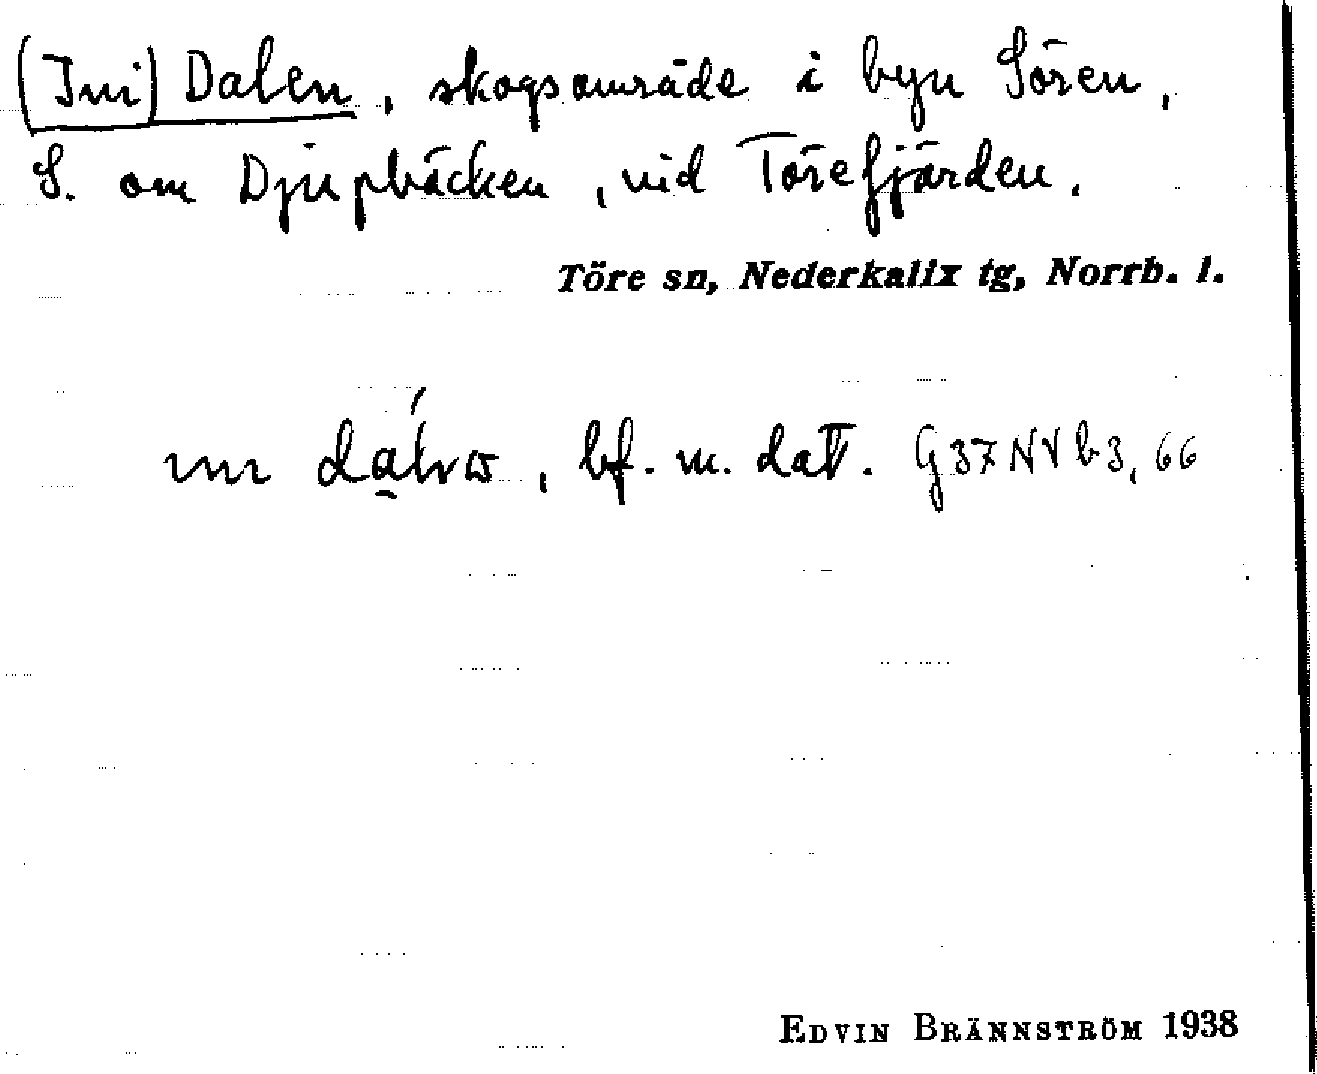 (Ini) Dalen, skogsområde i byn Sören,
S. om Djupbäcken, vid Törefjärden.
Töre sn, Nederkalix tg, Norrb. l.
bf. m. dat. G37NVb3, 66
EDVIN BRÄNNSTRÖM 1938